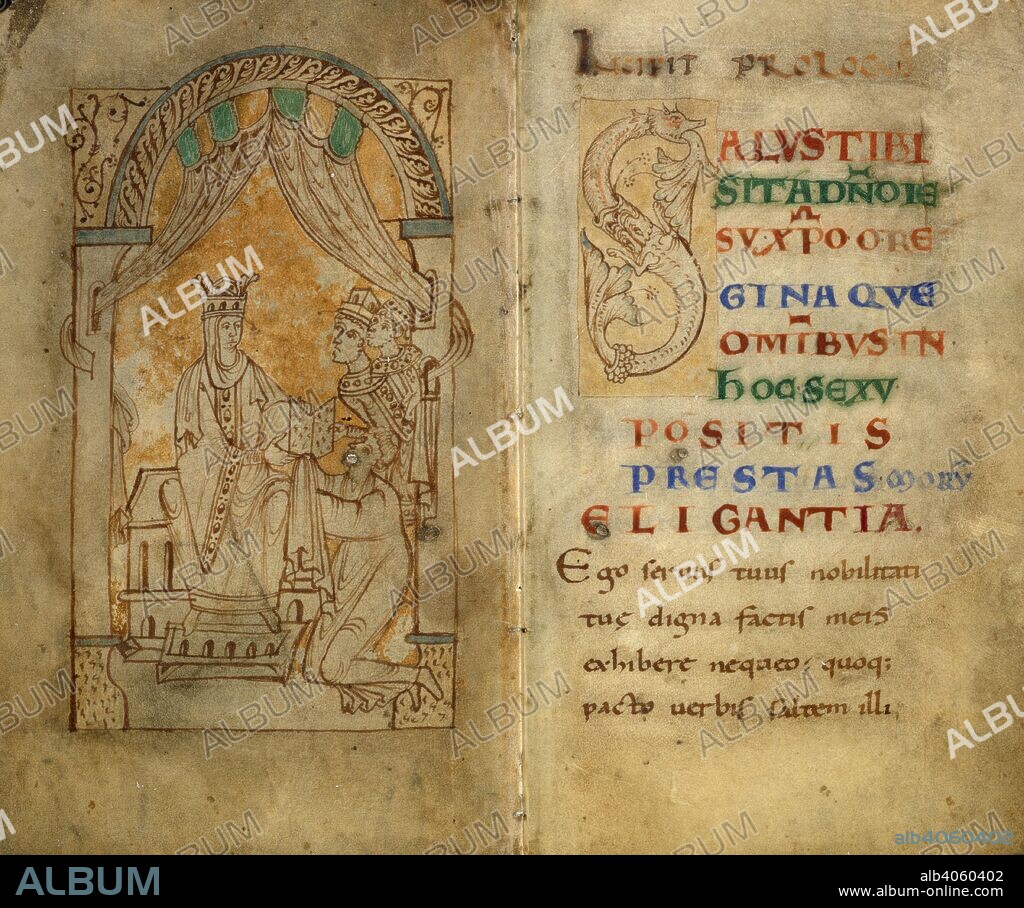 Incipit PROLOGUS
SALVS TIBI
SIT A DÑO IE
SV XPO O RE
GINA QVE
OMIBVS IN
hOC SEXV
POSITIS
PRESTAS MORV̄
ELIGANTIA.
Ego seruus tuus nobilitati
tuę digna factis meis
exhibere nequeo, quoq;
pacto uerbis saltem illi
ALBUM
alb4060402
ALBUM
alb4060402
www.album-online.com